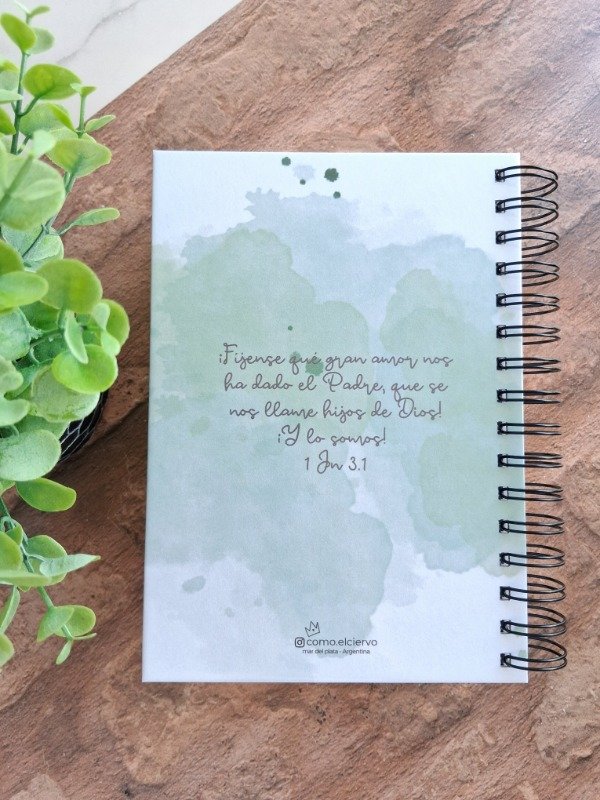 ¡Fíjense qué gran amor nos
ha dado el Padre, que se
nos llame hijos de Dios!
¡Y lo somos!
1 Jn 3.1
@como.elciervo
mar del plata - Argentina